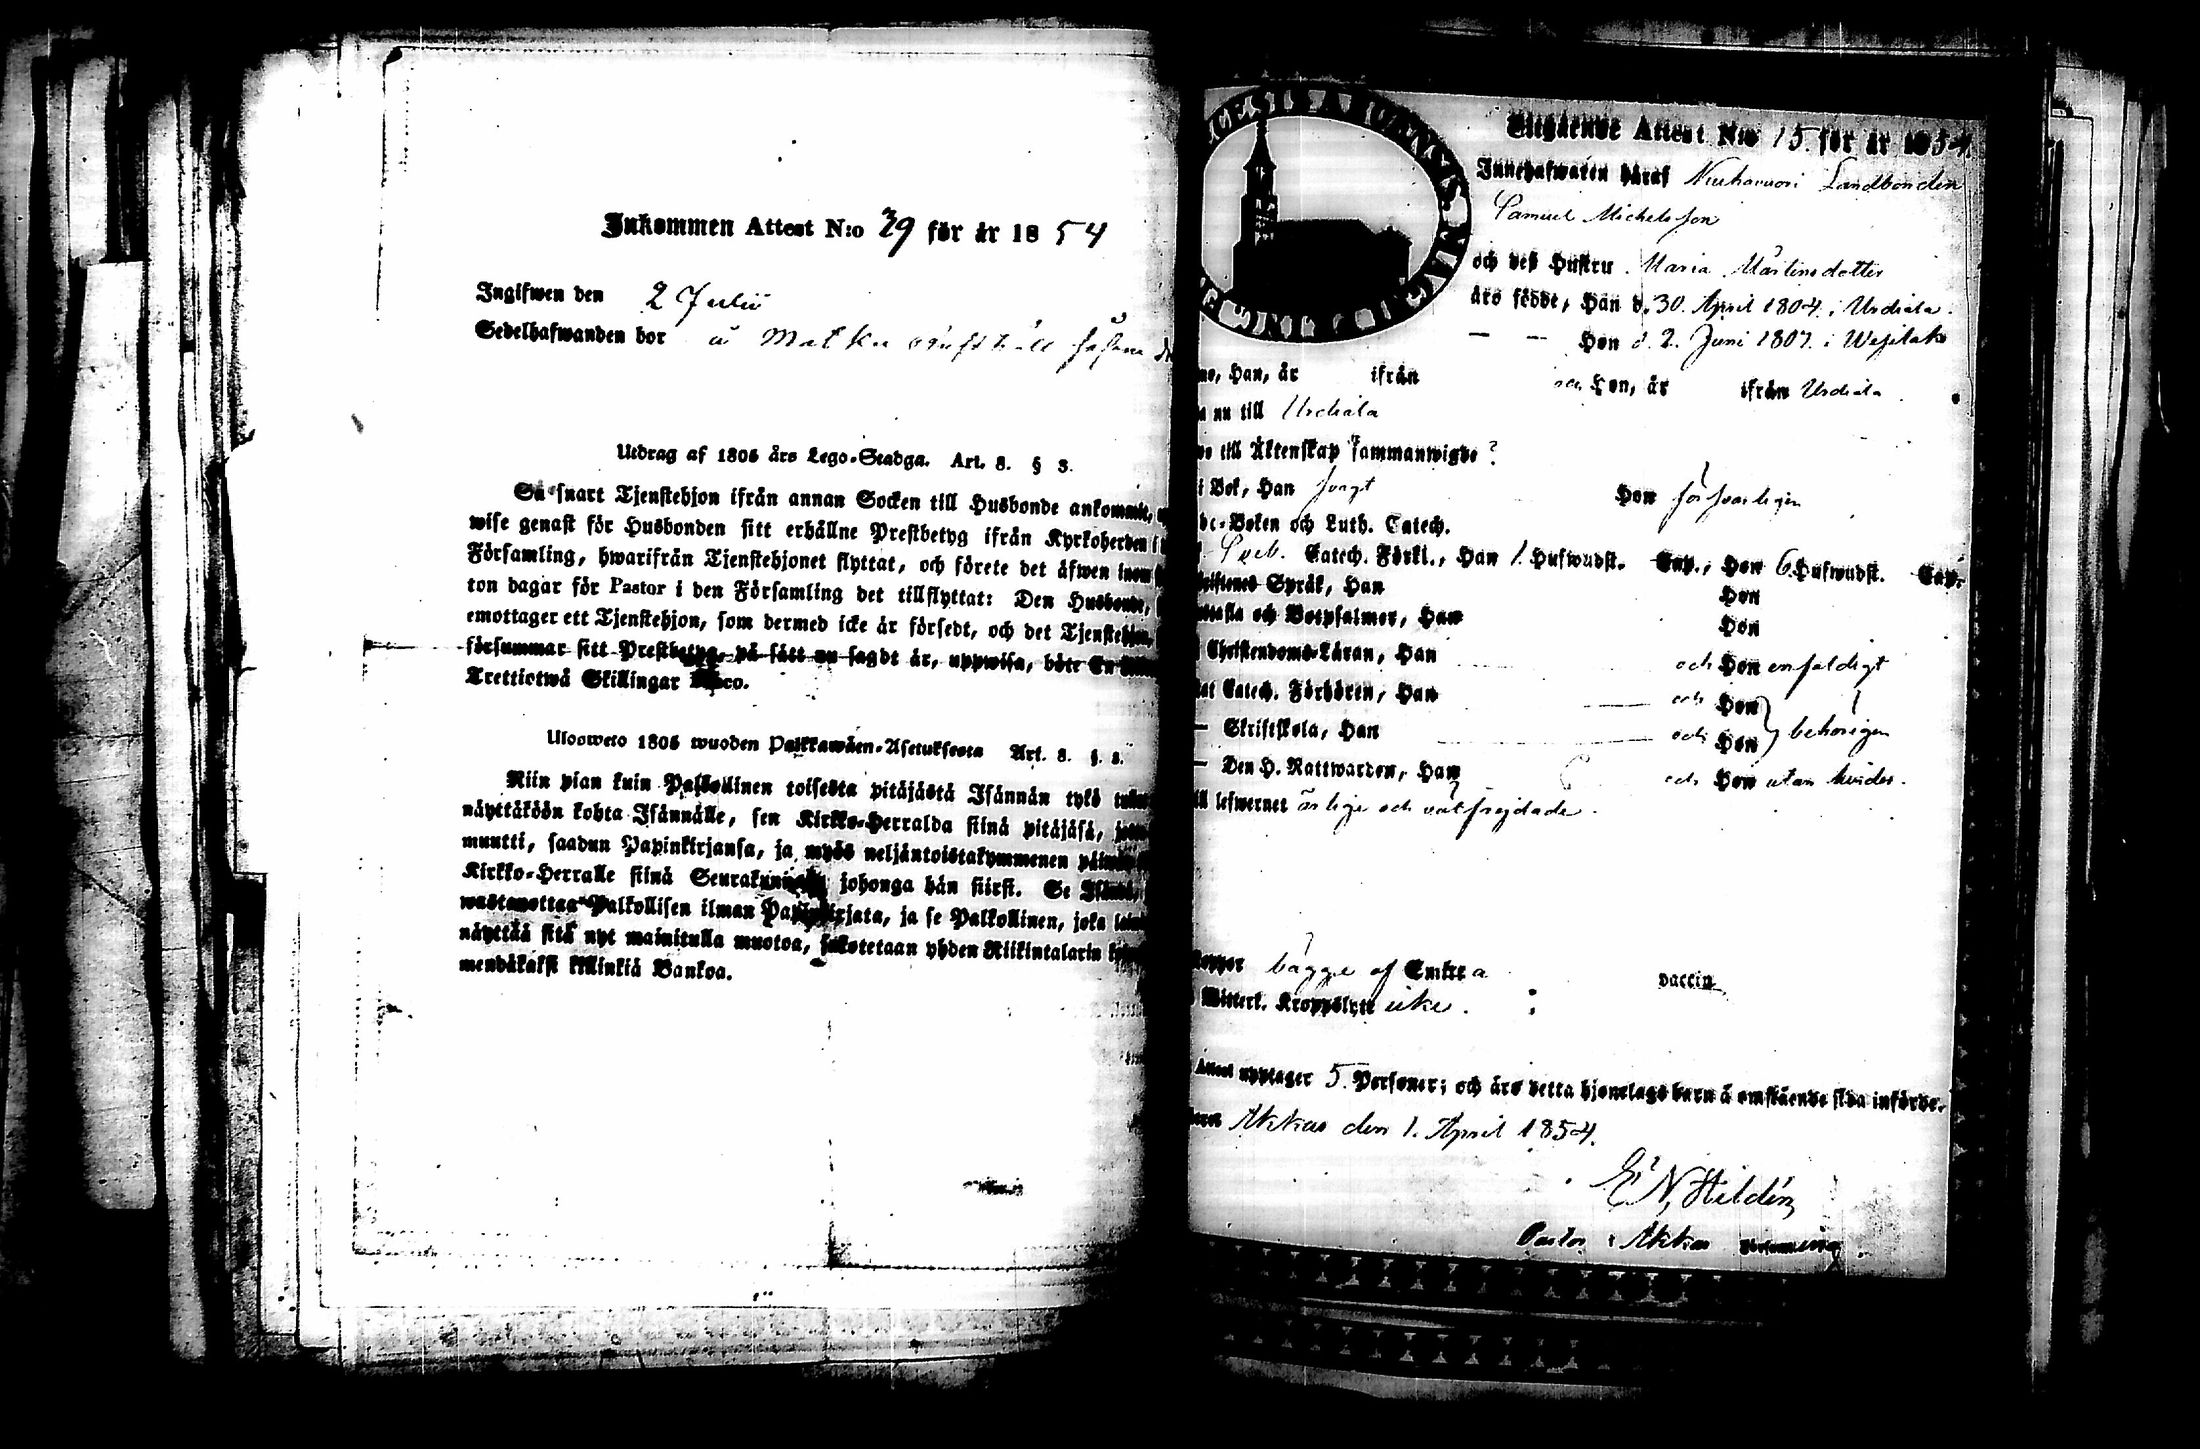 Inkommen Attest N:o 39 för år 1854
Ingifwen den 2 Julii
Sedelhafwanden bor
Utdrag af 1805 års Lego-Stadga. Art. 8. § 3.
Så snart Tjenstehjon ifrån annan Socken till Husbonde ankommit,
wise genast för Husbonden sitt erhållne Prestbetyg ifrån Kyrkoherden i
Församling, hwarifrån Tjenstehjonet flyttat, och förete det äfwen inom
ton dagar för Pastor i den Församling det tillflyttat: Den Husbonde,
emottager ett Tjenstehjon, som dermed icke är försedt, och det Tjenstehjon,
försummar sitt Prestbetyg, på sätt nu sagdt är, uppwisa, böte En
Trettiotwå Skillingar Banco.
Ulosweto 1805 wuoden Palkkawäen-Asetuksesta Art. 8. §. 3.
Niin pian kuin Palkollinen toisesta pitäjästä Isännän tykö
näyttäköön kohta Isännälle, sen Kirkko-Herralda siinä pitäjäsä,
muutti, saadun Papinkirjansa, ja myös neljäntoistakymmenen
Kirkko-Herralle siinä johonga hän siirsi. Se Isändä,
wastanottaa Palkollisen ilman Papinkirjata, ja se Palkollinen, joka
näyttää sitä nyt mainitulla muotoa, sakotetaan yhden Riikintalarin
mendäkaksi killinkiä Bankoa.
Utgående Attest N:o 15. för år 1854.
Innehafwaren häraf Landbonden
Samuel Michelsson
och deß Hustru Maria Mårtensdotter
äro födde, Han d. 30. April 1804. i Urdiala.
— — Hon d. 2. Juni 1807. i Wesilaks
Han, år ifrån och Hon, år ifrån Urdiala
nu till Urdiala
till Äktenskap sammanwigde?
i Bok, Han svagt Hon försvarligen
Boken och Luth. Catech.
Sveb. Catech. Förkl., Han 1. Hufwudst. Cap., Hon 6. Hufwudst. Cap.
Språk, Han Hon
och Botpsalmer, Han Hon
Christendoms-Läran, Han och Hon enfaldigt
Catech. Förhören, Han och Hon
— Skriftskola, Han och Hon behörigen
— Den H. Nattwarden, Han och Hon utan hinder.
till lefwernet ärlige och välfrejdade.
Koppor bägge af Smitta vaccin
Witterl. Kroppslyte icke.
Attest upptager 5. Personer; och äro detta hjonelags barn å omstående sida införde.
Akkas den 1. April 1854.
E N Hildén
Pastor i Akkas